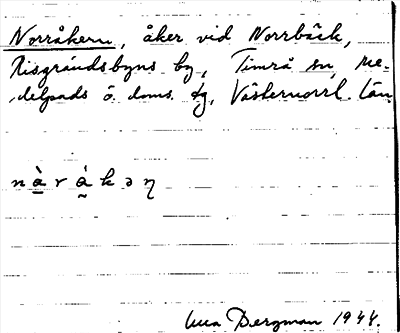 Norråkern, åker vid Norrbäck,
Risgrändsbyns by, Timrå sn, Me-
delpads ö. doms. fg, Västernorrl. län
n à r á k ə ṇ
Bergman 1944.